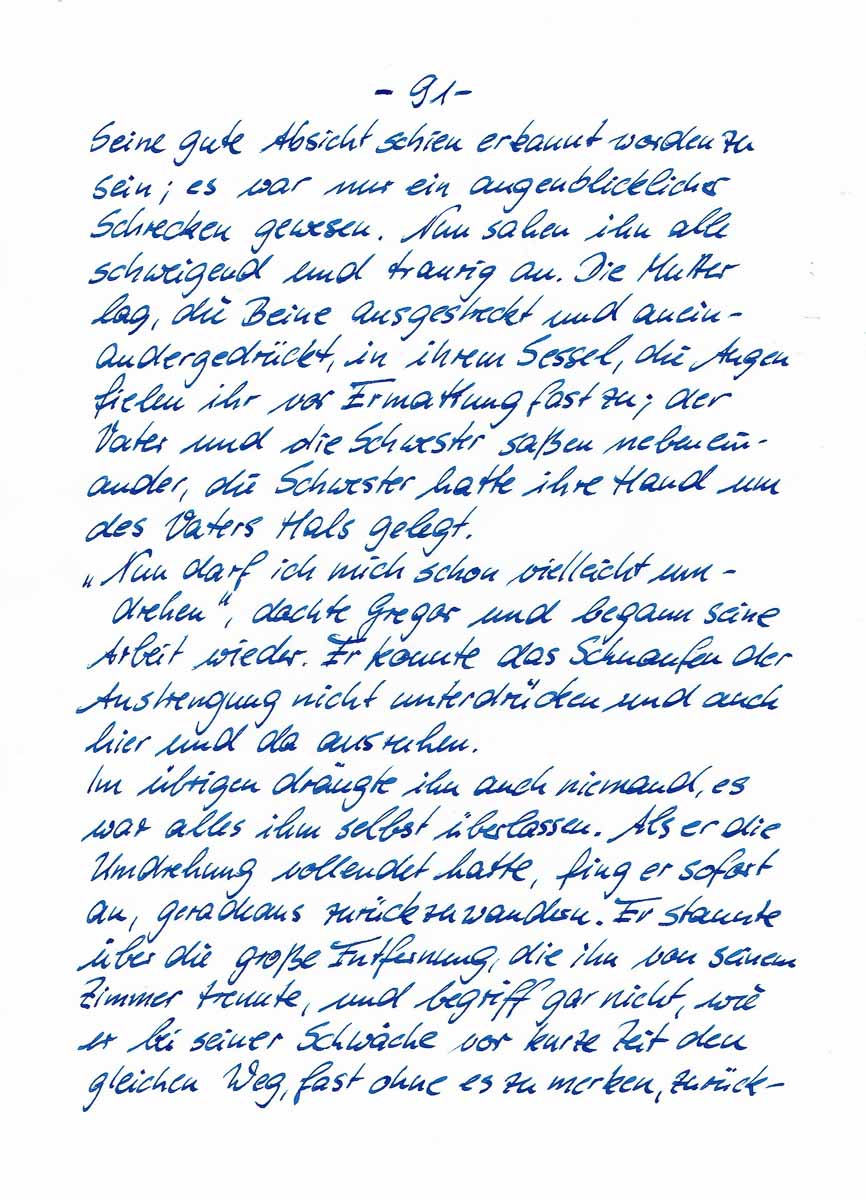 - 91 -
Seine gute Absicht schien erkannt worden zu
sein; es war nur ein augenblicklicher
Schrecken gewesen. Nun sahen ihn alle
schweigend und traurig an. Die Mutter
lag, die Beine ausgestreckt und anein-
andergedrückt, in ihrem Sessel, die Augen
fielen ihr vor Ermattung fast zu; der
Vater und die Schwester saßen nebenein-
ander, die Schwester hatte ihre Hand um
des Vaters Hals gelegt.
„Nun darf ich mich schon vielleicht um-
drehen", dachte Gregor und begann seine
Arbeit wieder. Er konnte das Schnaufen der
Anstrengung nicht unterdrücken und auch
hier und da ausruhen.
Im übrigen drängte ihn auch niemand, es
war alles ihm selbst überlassen. Als er die
Umdrehung vollendet hatte, fing er sofort
an, geradeaus zurückzuwandern. Er staunte
über die große Entfernung, die ihn von seinem
Zimmer trennte, und begriff gar nicht, wie
er bei seiner Schwäche vor kurze Zeit den
gleichen Weg, fast ohne es zu merken, zurück-